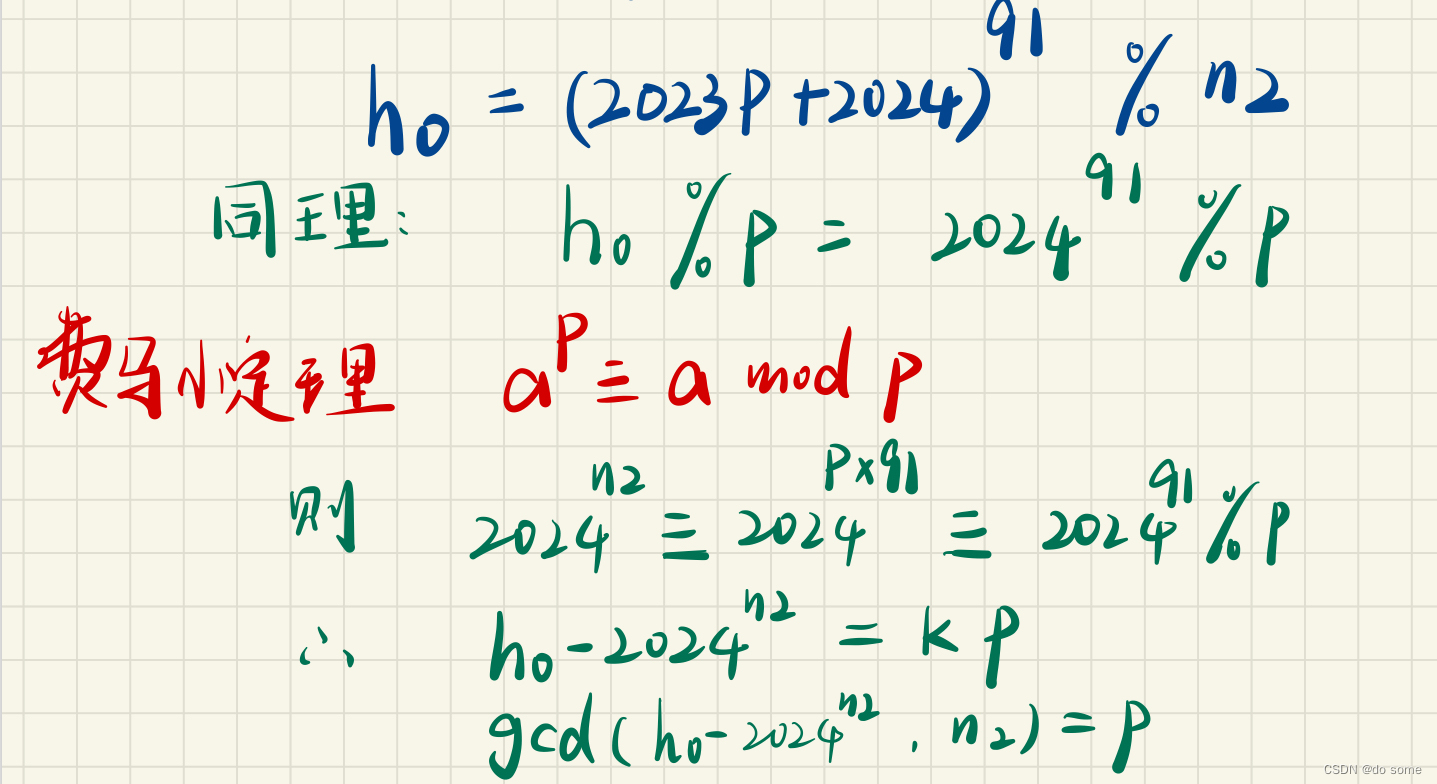 h0 = (2023p+2024)^q1 % n2
同理: h0 % p = 2024^q1 % p
费马小定理 a^p ≡ a mod p
则 2024^n2 ≡ 2024^p×q1 ≡ 2024^q1 % p
∴ h0-2024^n2 = kp
gcd(h0-2024^n2, n2) = p
CSDN @do some